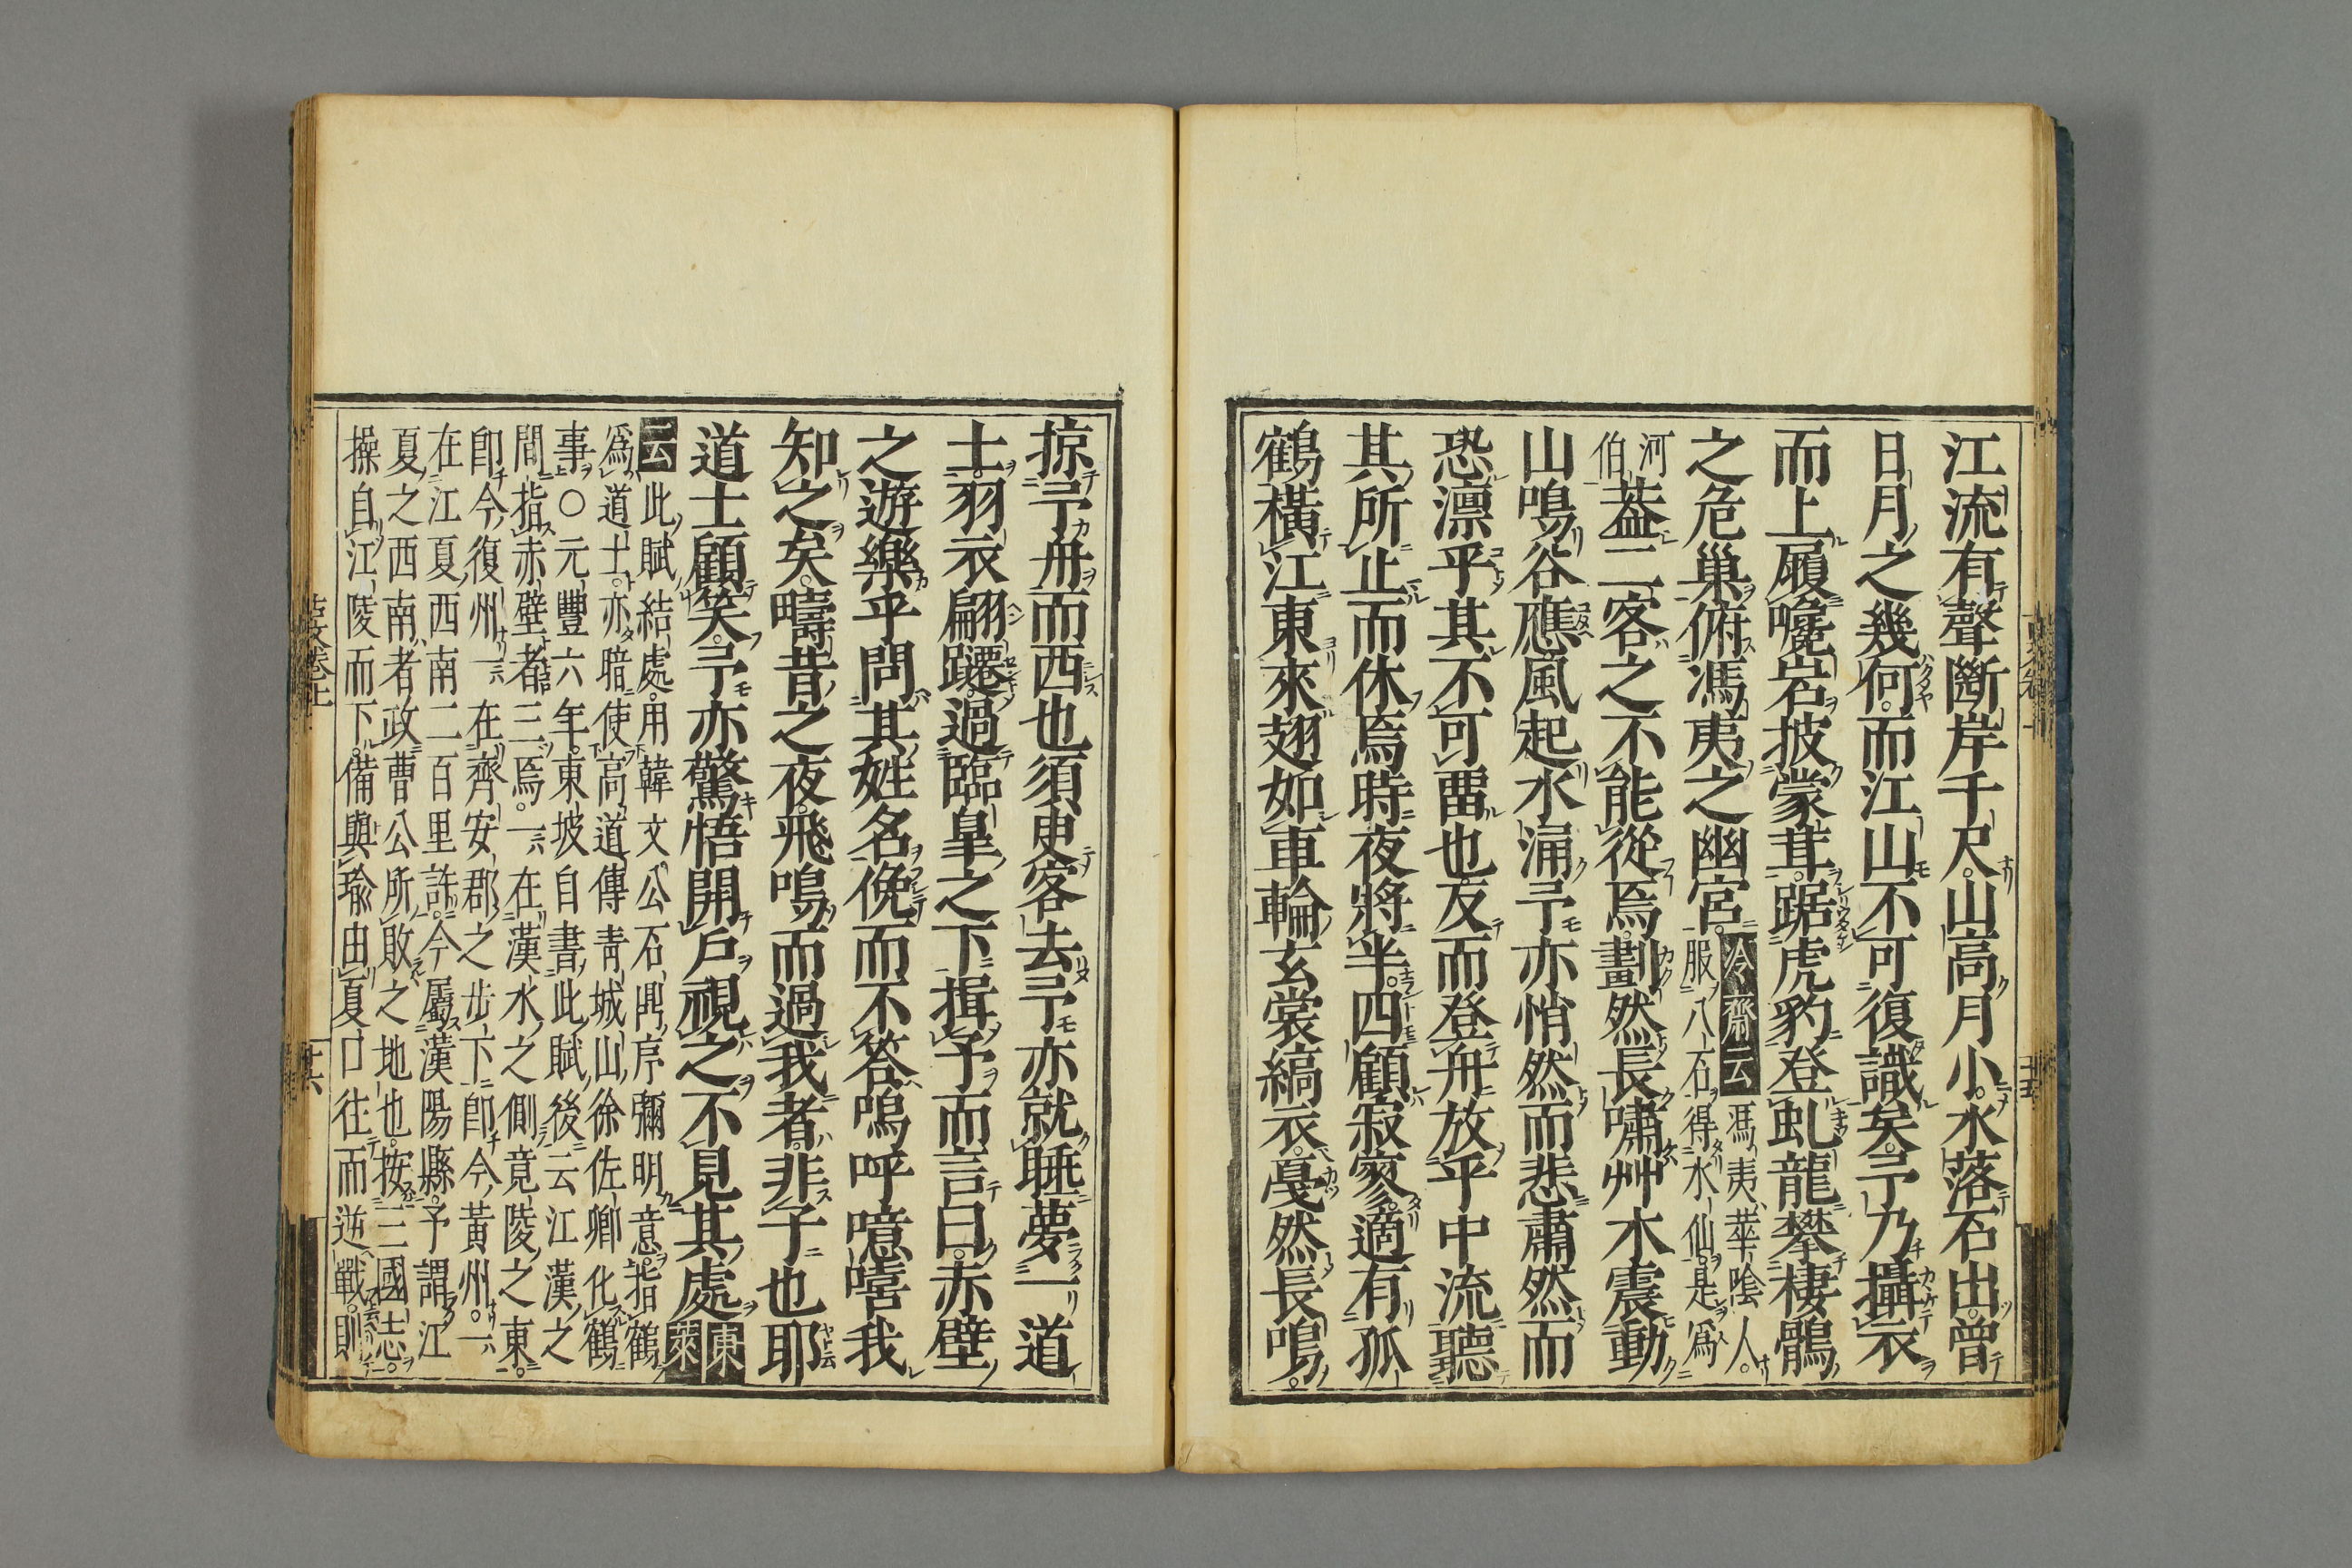 江流有聲斷岸千尺山高月小水落石出曾
日月之幾何而江山不可復識矣予乃攝衣
而上履巉岩披蒙茸踞虎豹登虬龍攀棲鶻
之危巢俯馮夷之幽宮冷齋云馮夷華陰人
服八石得水仙是爲
河
伯
葢二客之不能從焉劃然長嘯艸木震動
山鳴谷應風起水涌予亦悄然而悲肅然而
恐凛乎其不可畱也反而登舟放乎中流聽
其所止而休焉時夜將半四顧寂寥適有孤
鶴橫江東來翅如車輪玄裳縞衣戞然長鳴
掠予舟而西也須臾客去予亦就睡夢一道
士羽衣翩躚過臨皐之下揖予而言曰赤壁
之遊樂乎問其姓名俛而不答嗚呼噫嘻我
知之矣疇昔之夜飛鳴而過我者非子也耶
道士顧笑予亦驚悟開戶視之不見其處東萊
云此賦結處用韓文公石鼎序彌明意指鶴
爲道士亦暗使高道傳青城山徐佐卿化鶴
事○元豐六年東坡自書此賦後云江漢之
間指赤壁者三焉一在漢水之側竟陵之東
卽今復州一在齊安郡之步下卽今黃州一
在江夏西南二百里許今屬漢陽縣予謂江
夏之西南者政曹公所敗之地也按三國志
操自江陵而下備與瑜由夏口往而逆戰則
古文卷上
十六